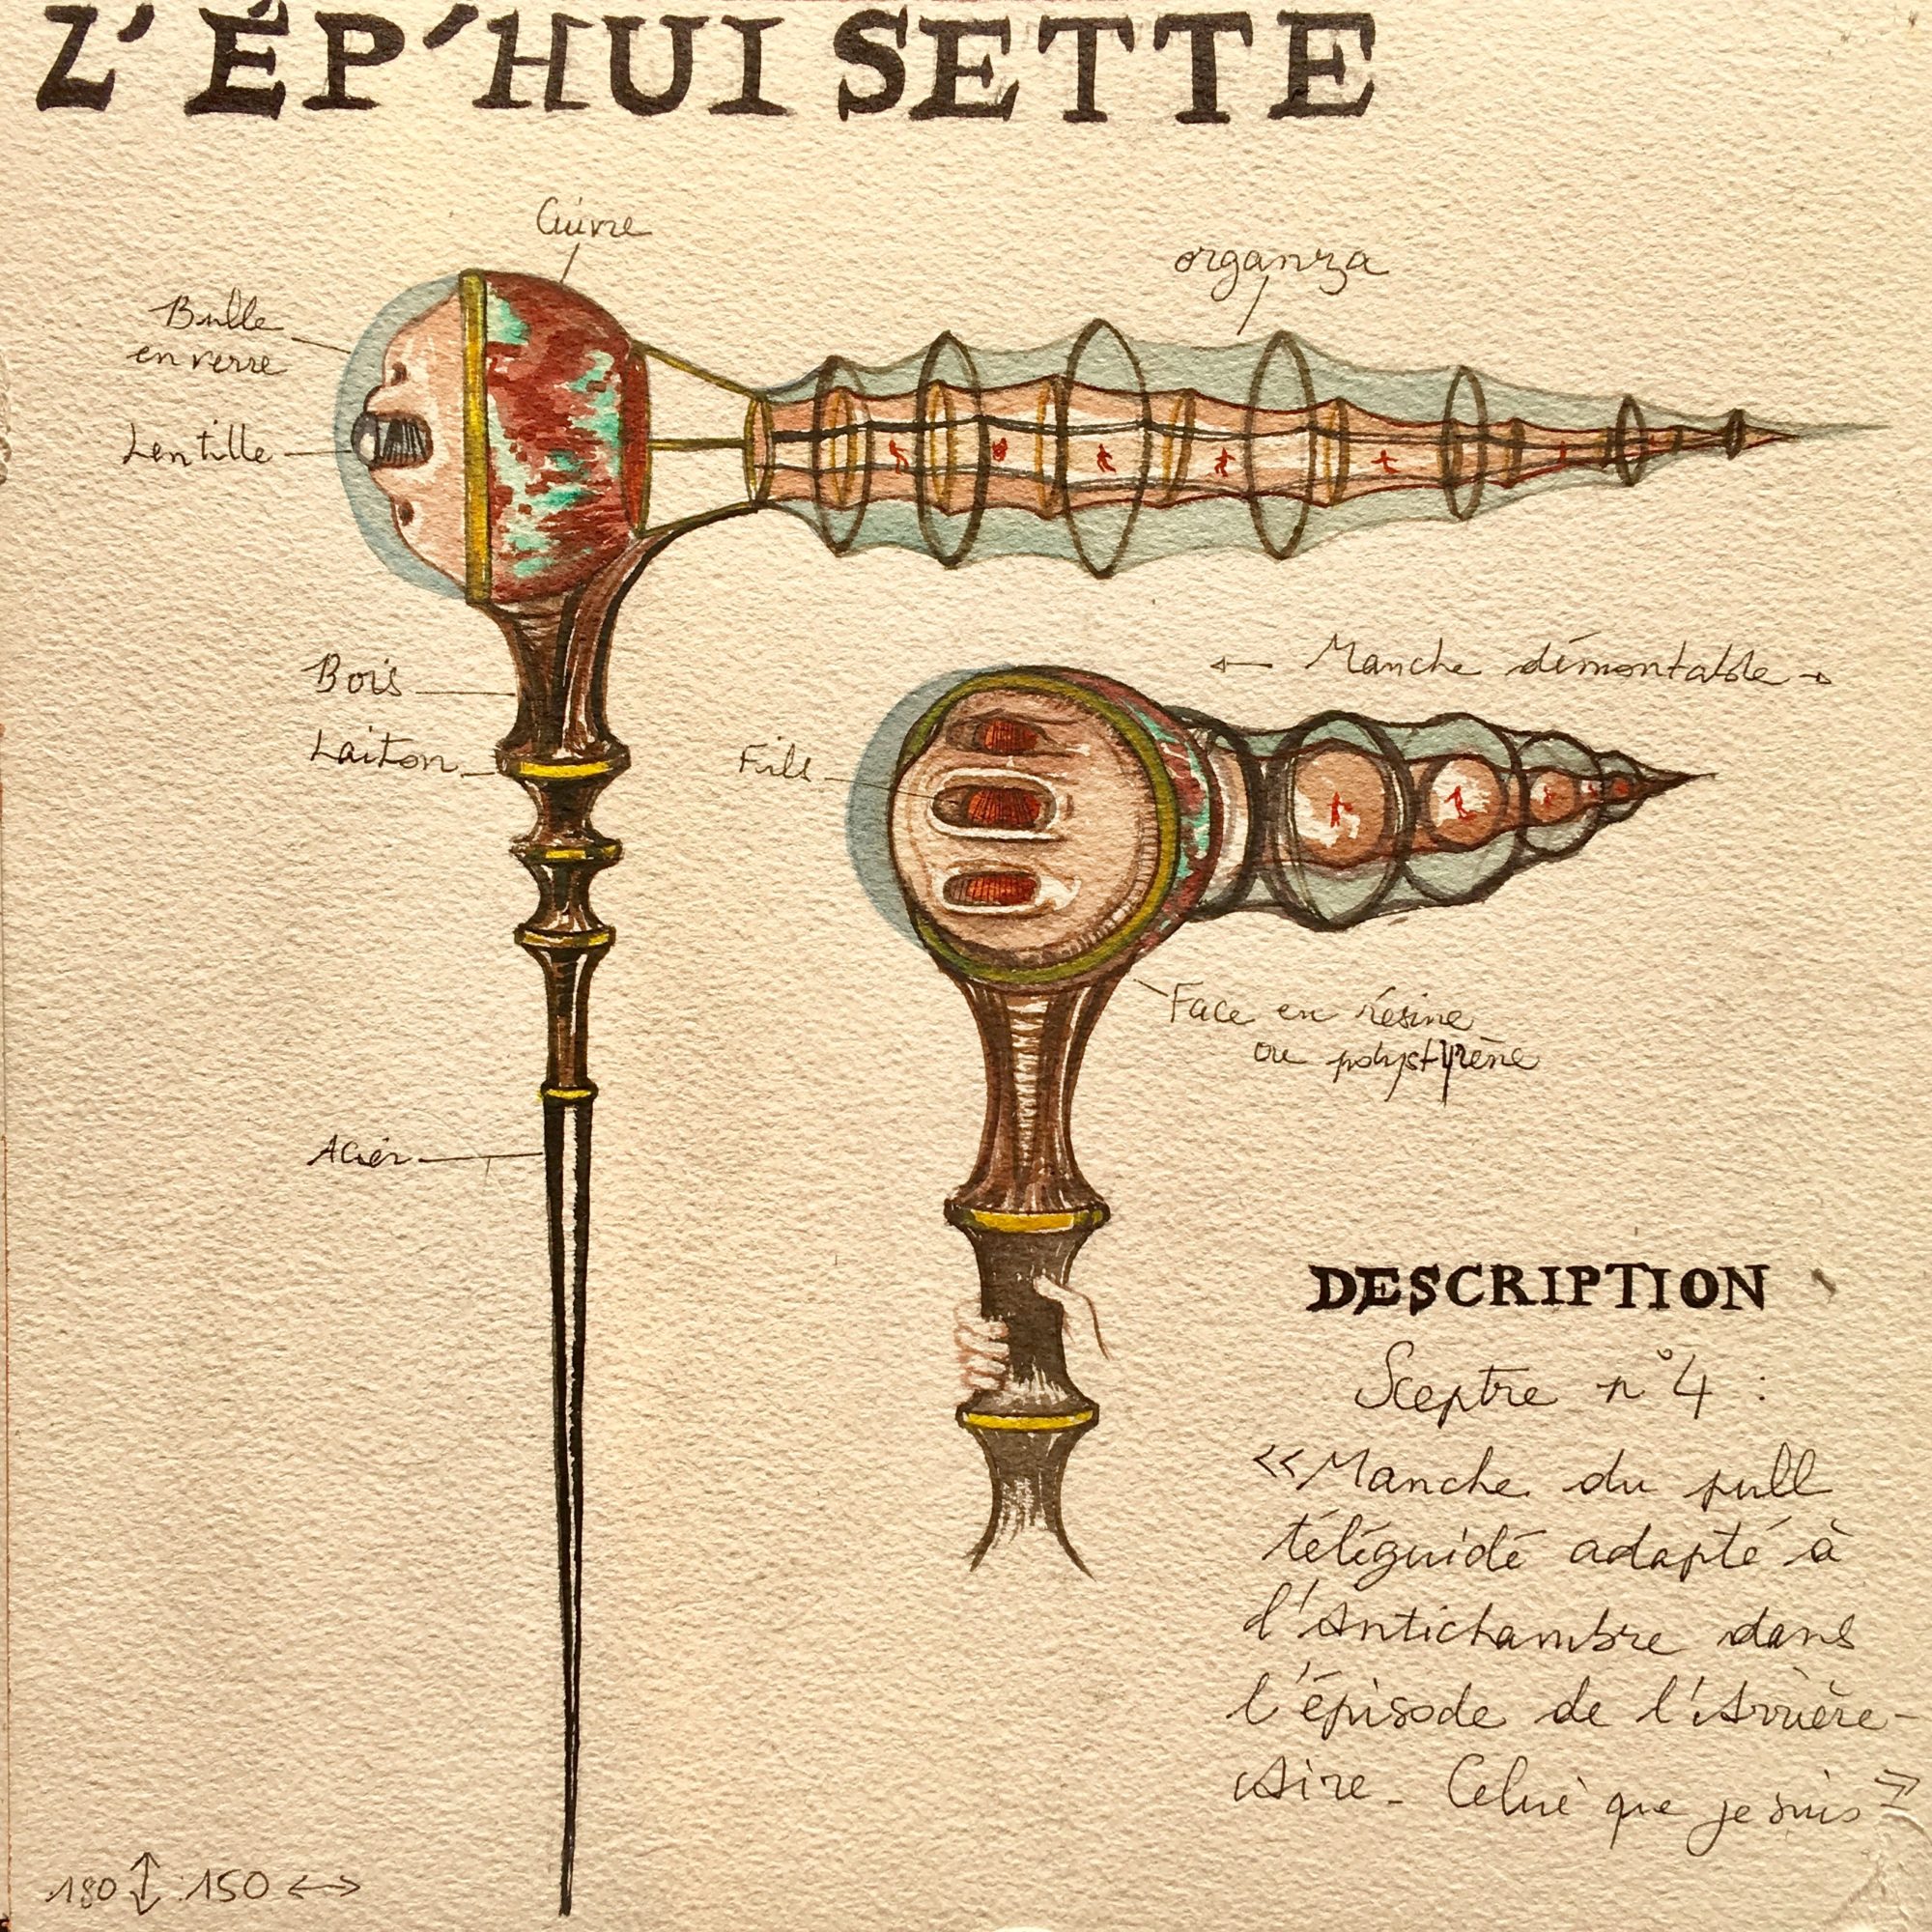 Z'ÉP'HUI SETTE
Cuivre
organza
Bulle
en verre
Lentille
Bois
← Manche démontable →
Laiton
Fils
Face en résine
ou polystyrène
Acier
DESCRIPTION
Sceptre n°4 :
<<Manche du pull
téléguidé adapté à
l'Antichambre dans
l'épisode de l'Arrière-
Aire - Celui que je suis >>
180 ↕ 150 ↔